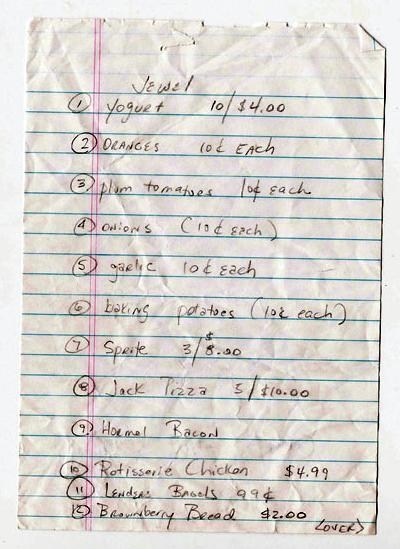 Jewel
1 Yogurt 10/$4.00
2 ORANGES 10¢ EACH
3 plum tomatoes 10¢ each
4 ONIONS (10¢ each)
5 garlic 10¢ each
6 baking potatoes (10¢ each)
7 Sprite 3/$8.00
8 Jack Pizza 3/$10.00
9 Hormel Bacon
10 Rotisserie Chicken $4.99
11 Lenders Bagels 99¢
12 Brownberry Bread $2.00
(OVER)